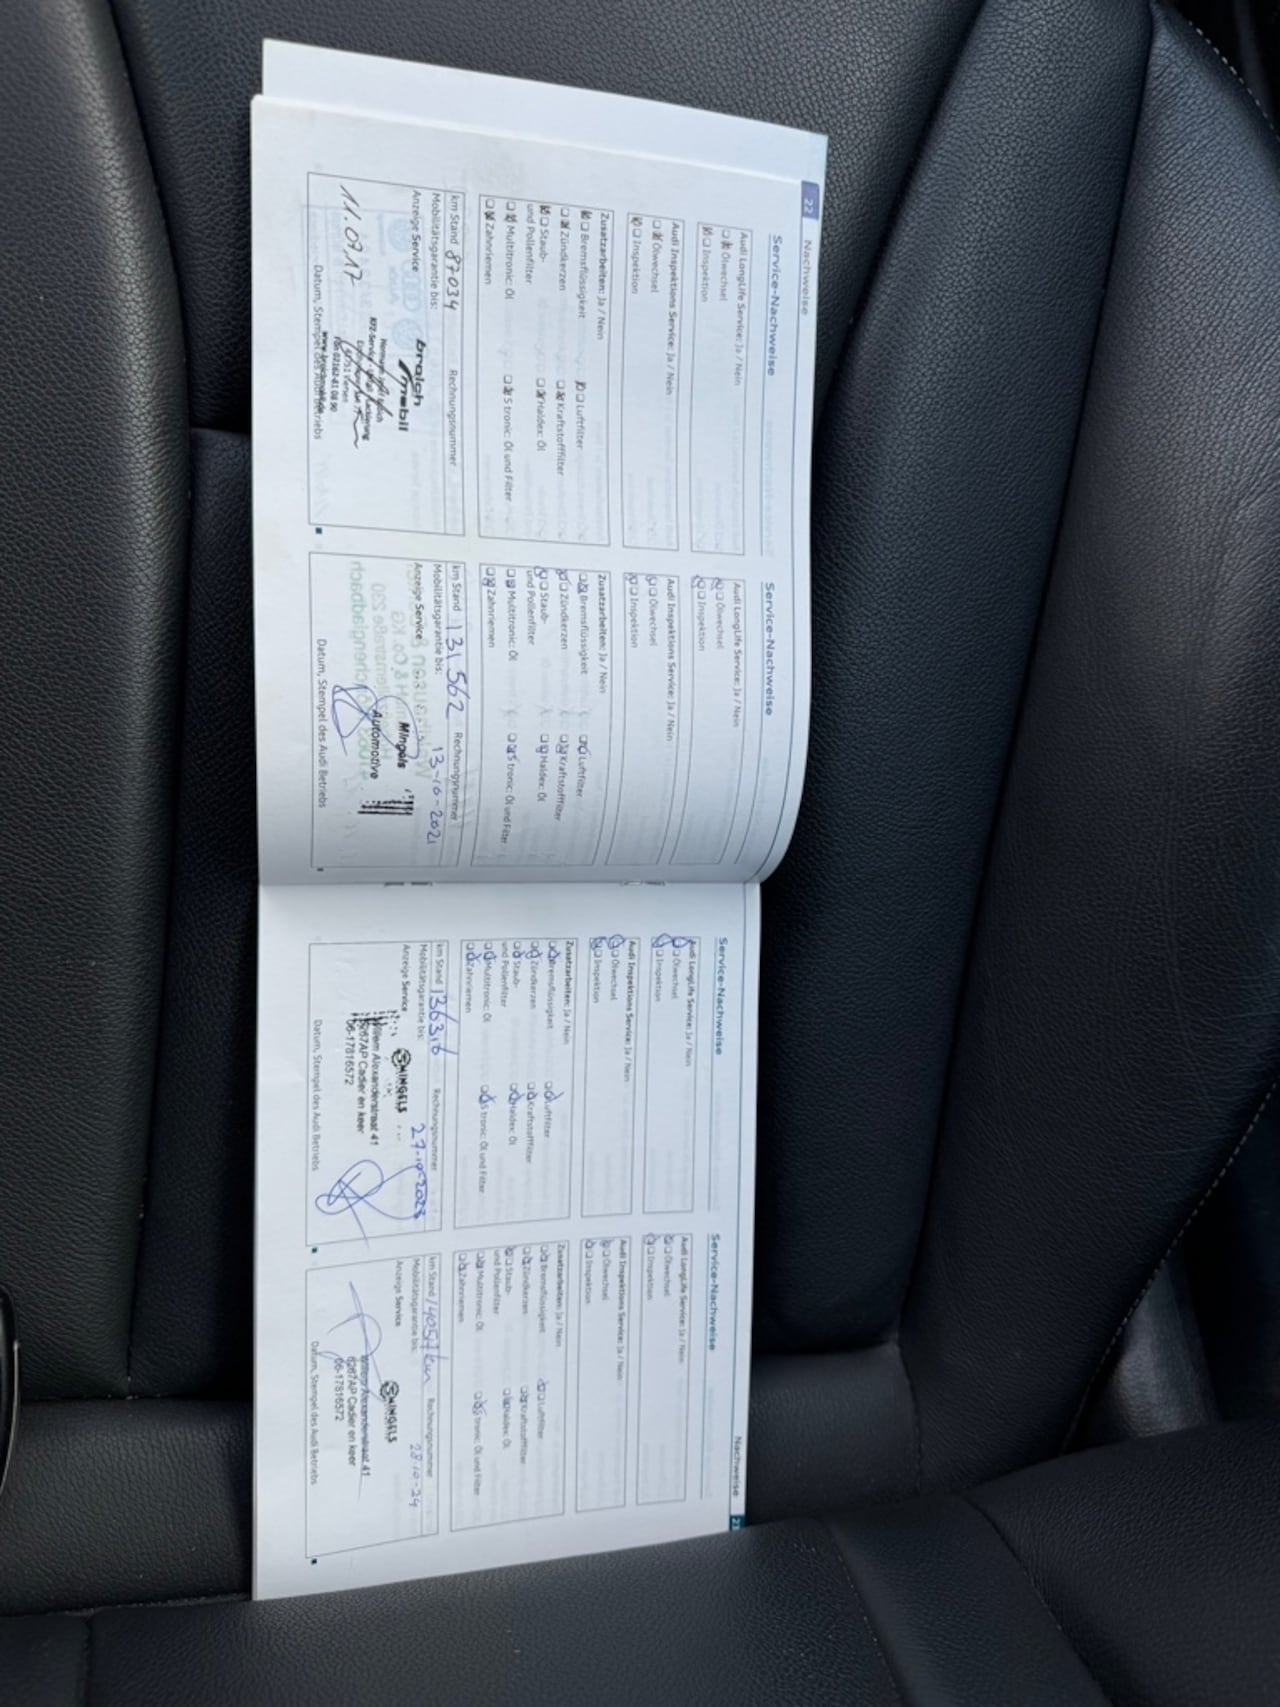 22
Nachweise
Service-Nachweise
Audi LongLife Service: Ja / Nein
Ölwechsel
Inspektion
Audi Inspektions Service: Ja / Nein
Ölwechsel
Inspektion
Zusatzarbeiten: Ja / Nein
Bremsflüssigkeit
Luftfilter
Zündkerzen
Kraftstofffilter
Staub-
Haldex: Öl
und Pollenfilter
Multitronic: Öl
S tronic: Öl und Filter
Zahnriemen
km Stand 87034
Rechnungsnummer
Mobilitätsgarantie bis:
Anzeige Service
11.09.17
mobil
Viersen
Datum, Stempel des Audi Betriebs
Service-Nachweise
Audi LongLife Service: Ja / Nein
Ölwechsel
Inspektion
Audi Inspektions Service: Ja / Nein
Ölwechsel
Inspektion
Zusatzarbeiten: Ja / Nein
Bremsflüssigkeit
Luftfilter
Zündkerzen
Kraftstofffilter
Staub-
Haldex: Öl
und Pollenfilter
Multitronic: Öl
S tronic: Öl und Filter
Zahnriemen
km Stand 131562
Rechnungsnummer
Mobilitätsgarantie bis:
13-10-2021
Anzeige Service
Mingels
Automotive
Datum, Stempel des Audi Betriebs
Nachweise
23
Service-Nachweise
Audi LongLife Service: Ja / Nein
Ölwechsel
Inspektion
Audi Inspektions Service: Ja / Nein
Ölwechsel
Inspektion
Zusatzarbeiten: Ja / Nein
Bremsflüssigkeit
Luftfilter
Zündkerzen
Kraftstofffilter
Staub-
Haldex: Öl
und Pollenfilter
Multitronic: Öl
S tronic: Öl und Filter
Zahnriemen
km Stand 136316
Rechnungsnummer
Mobilitätsgarantie bis:
27-10-2023
Anzeige Service
MINGELS
Willem Alexanderstraat 41
6267AP Cadier en keer
06-17816572
Datum, Stempel des Audi Betriebs
Service-Nachweise
Audi LongLife Service: Ja / Nein
Ölwechsel
Inspektion
Audi Inspektions Service: Ja / Nein
Ölwechsel
Inspektion
Zusatzarbeiten: Ja / Nein
Bremsflüssigkeit
Luftfilter
Zündkerzen
Kraftstofffilter
Staub-
Haldex: Öl
und Pollenfilter
Multitronic: Öl
S tronic: Öl und Filter
Zahnriemen
km Stand 140597km
Rechnungsnummer
Mobilitätsgarantie bis:
28-10-24
Anzeige Service
MINGELS
Willem Alexanderstraat 41
6267AP Cadier en keer
06-17816572
Datum, Stempel des Audi Betriebs